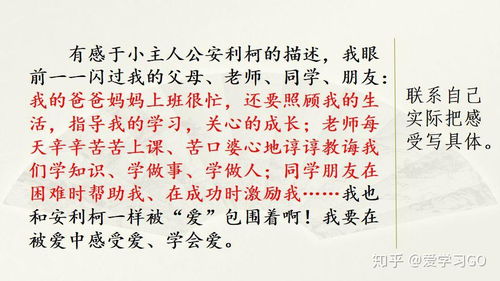 有感于小主人公安利柯的描述，我眼
前一一闪过我的父母、老师、同学、朋友：
我的爸爸妈妈上班很忙，还要照顾我的生
活，指导我的学习，关心的成长；老师每
天辛辛苦苦上课、苦口婆心地谆谆教诲我
们学知识、学做事、学做人；同学朋友在
困难时帮助我、在成功时激励我……我也
和安利柯一样被“爱”包围着啊！我要在
被爱中感受爱、学会爱。
联系自己
实际把感
受写具体。
知乎 @爱学习GO